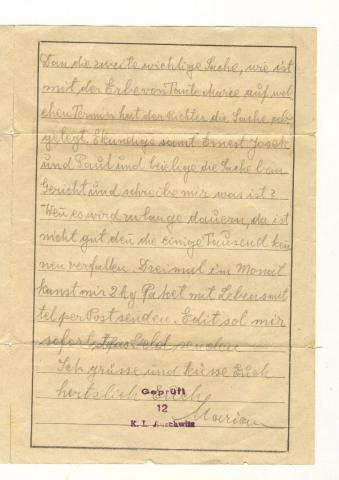 Dan die zweite wichtige Sache, wie ist
mit der Erbe von Tante Marie auf wel
chen Termin hat der Richter die Sache ab
gelegt. Ekundige samt Ernest Josek
und Paul und beielige die Sache beim
Gericht und schreibe mir was ist?
Wen es wird zu lange dauern, da ist
nicht gut den die einige Tausend kön
nen verfallen. Dreimal im Monat
kanst mir 2 kg Paket mit Lebensmit
tel per Post senden. Edit sol mir
sofort das Geld senden
Ich grüsse und küsse Euch
hertzlich Euch
Marian
Geprüft
12
K. L. Auschwitz